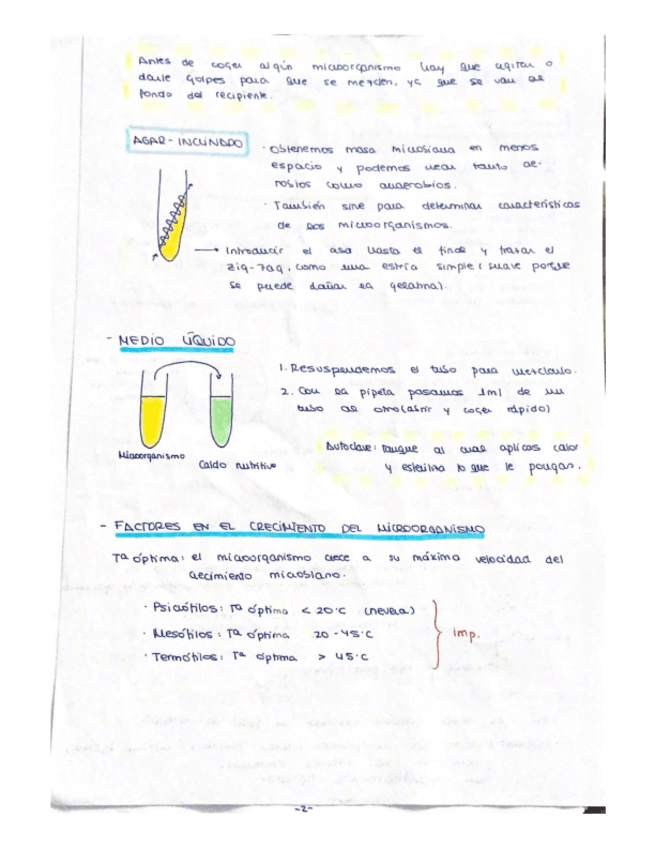 Antes de coger algún microorganismo hay que agitar o
darle golpes para que se mezclen, ya que se van al
fondo del recipiente.
AGAR-INCLINADO
· Obtenemos masa microbiana en menos
espacio y podemos usar tanto ae-
robios como anaerobios.
· También sirve para determinar características
de los microorganismos.
→ Introducir el asa hasta el final y trazar el
zig-zag, como una estría simple (suave porque
se puede dañar la gelatina).
- MEDIO LÍQUIDO
1. Resuspendemos el tubo para mezclarlo.
2. Con la pipeta pasamos 1ml de un
tubo al otro (abrir y coger rápido)
Microorganismo
Caldo nutritivo
Autoclave: tanque al cual aplicas calor
y esteriliza lo que le pongas.
- FACTORES EN EL CRECIMIENTO DEL MICROORGANISMO
Tª óptima: el microorganismo crece a su máxima velocidad del
crecimiento microbiano.
· Psicrófilos: Tª óptima < 20°C (nevera)
· Mesófilos: Tª óptima 20-45°C
· Termófilos: Tª óptima > 45°C
Imp.
-2-